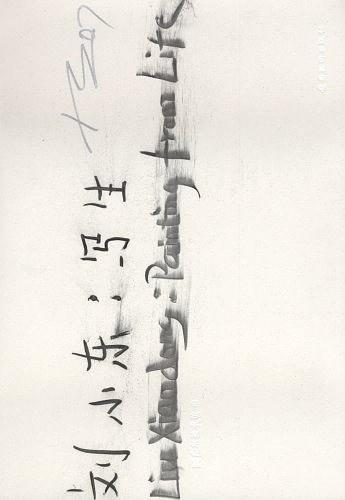 刘小东：写生
Liu Xiaodong : Painting from Life